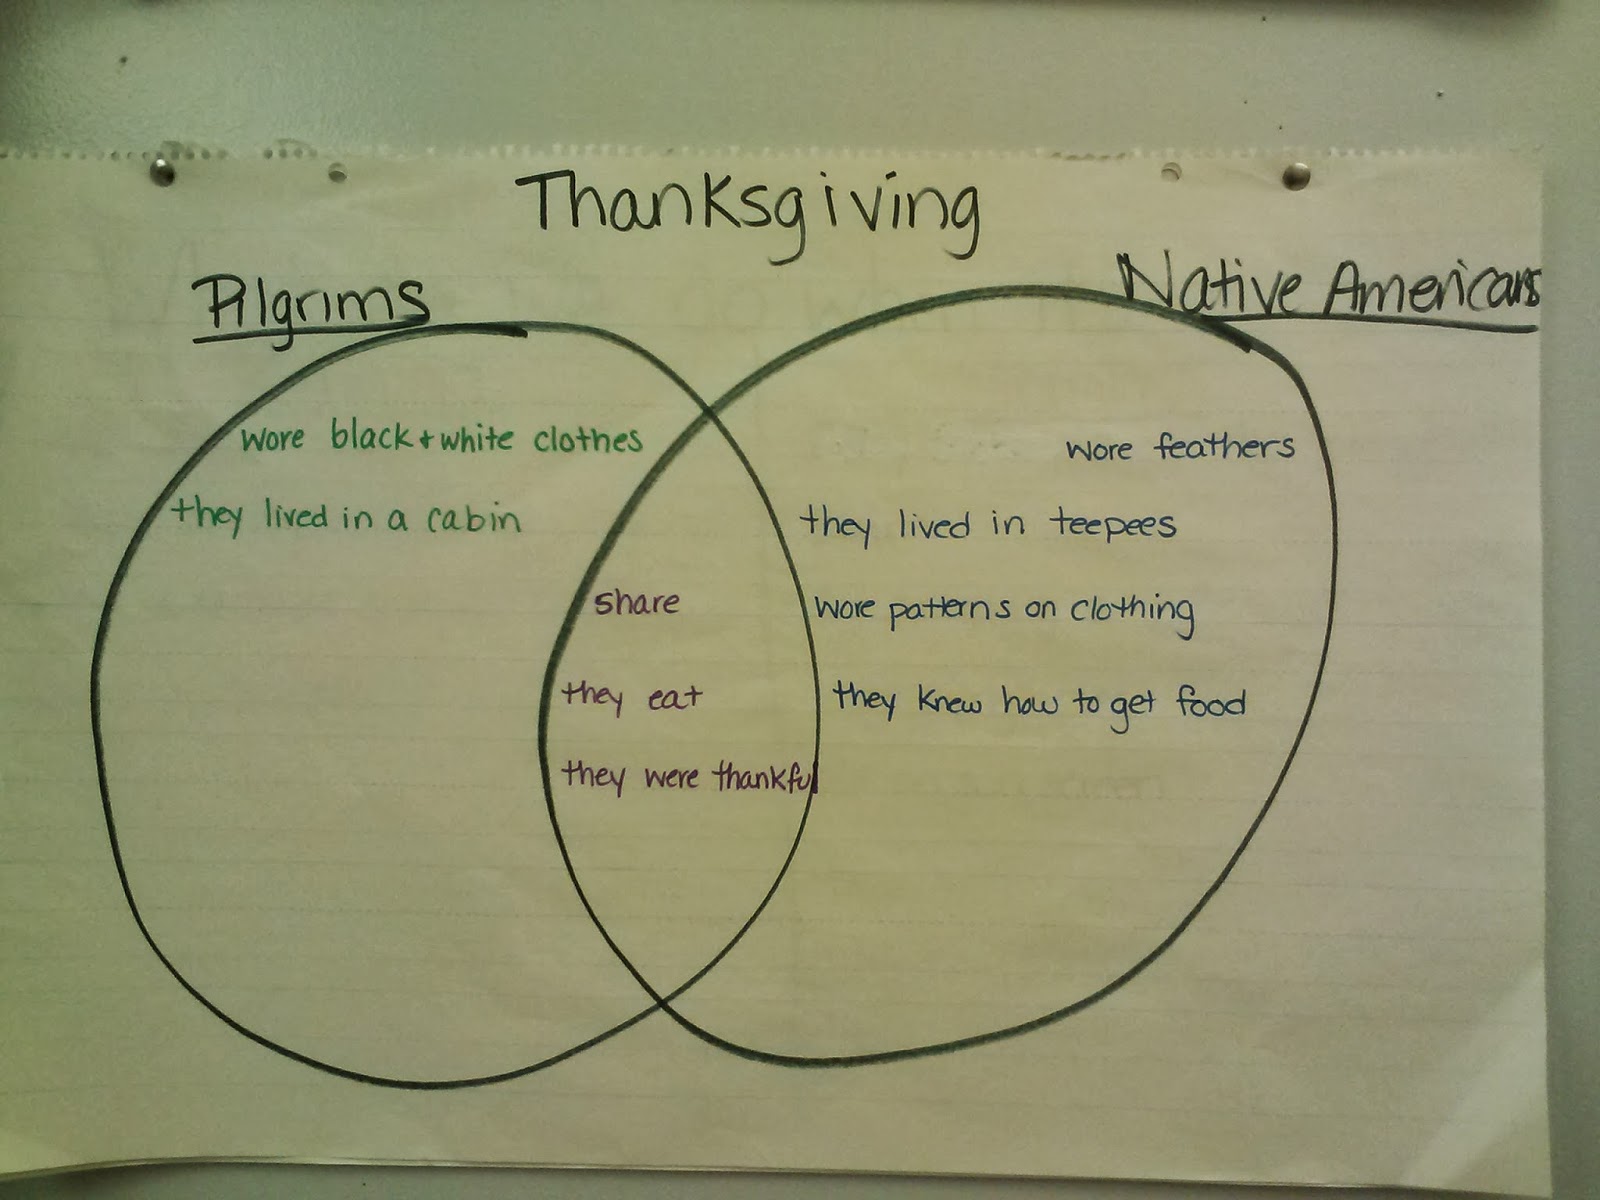 Thanksgiving
Pilgrims
Native Americans
wore black + white clothes
they lived in a cabin
share
they eat
they were thankful
wore feathers
they lived in teepees
wore patterns on clothing
they knew how to get food